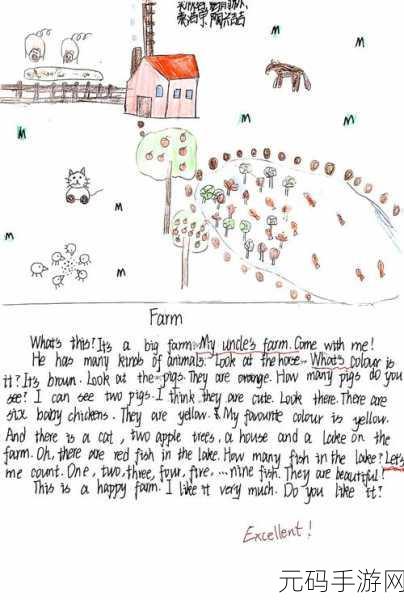 Farm
What's this? It's a big farm. My uncle's farm. Come with me!
He has many kinds of animals. Look at the horse. What's colour is
it? It's brown. Look at the pigs. They are orange. How many pigs do you
see? I can see two pigs. I think they are cute. Look there. There are
six baby chickens. They are yellow. My favourite colour is yellow.
And there is a cat, two apple trees, a house and a lake on the
farm. Oh, there are red fish in the lake. How many fish in the lake? Let's
me count. One, two, three, four, five, ...nine fish. They are beautiful!
This is a happy farm. I like it very much. Do you like it?
Excellent!
元码手游网